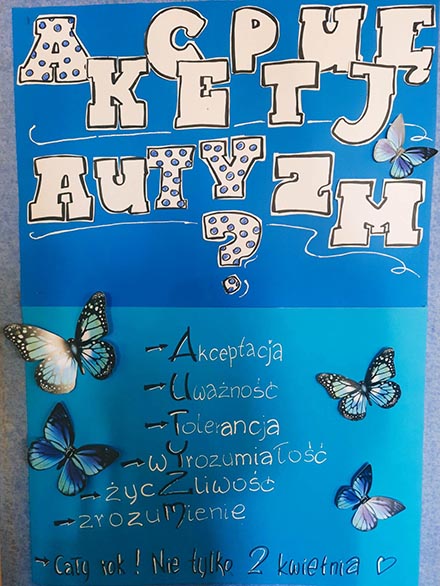 AKCEPTUJĘ
AUTYZM
?
→ Akceptacja
→ Uważność
→ Tolerancja
→ wYrozumiałość
→ życZliwość
→ zrozuMienie
→ Cały rok! Nie tylko 2 kwietnia ♡